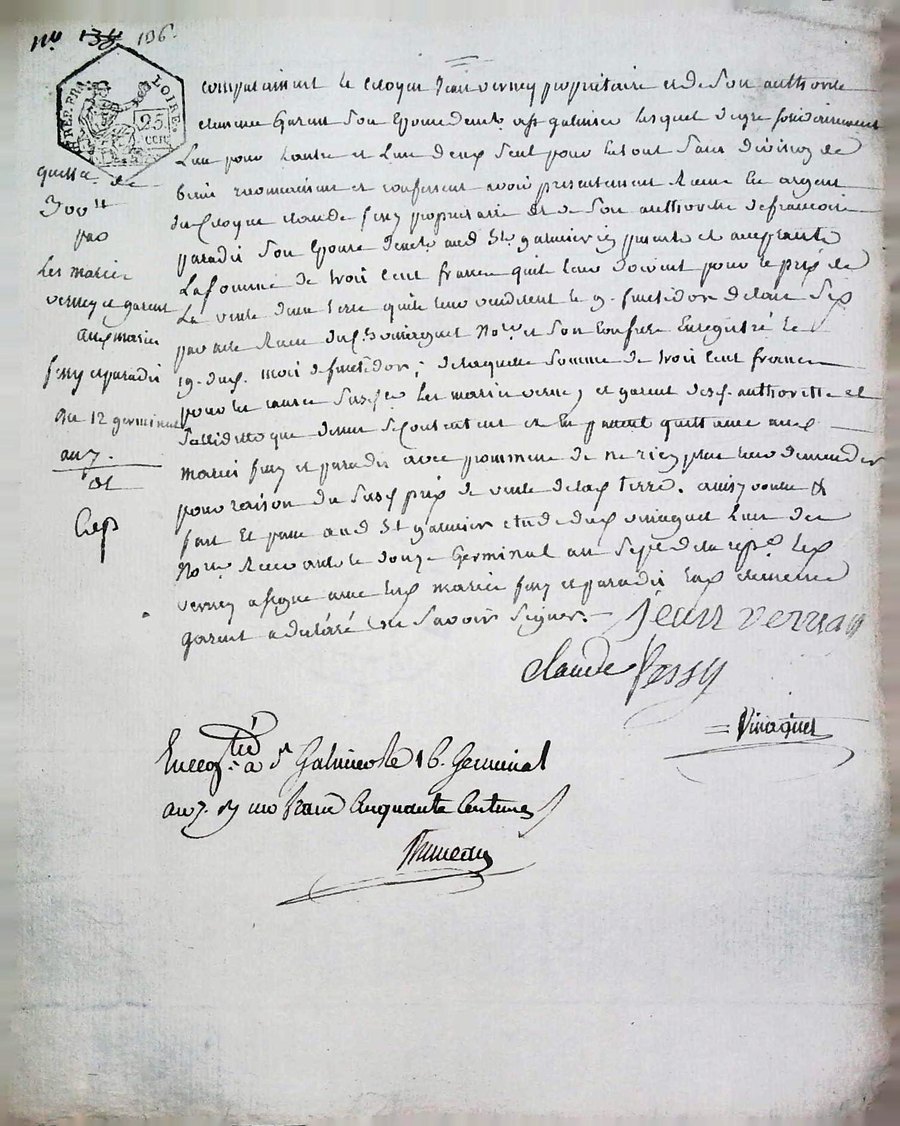 no. 138 196.
REP. FRA.
LOIRE.
25
CEN.
quittce de
300 tt
par
Les mariés
verney et garent
aux mariés
fessy et paradis
Du 12 germinal
an 7.
Cep
comparaissent le citoyen Jean verney propriétaire et de son authorité
clemence Garent son Epouse demt. a St galmier lesquels de gré solidairement
L'un pour Lautre et L'un d'eux seul pour le tout sans division de
bien reconnoissent et confessent avoir présentement Recu En argent
du Citoyen claude fessy propriétaire et de son authorité de francoise
paradis son Epouse demt. aud St. galmier ici presents et acceptants
La somme de trois Cent francs qu'ils leur doivent pour le prix de
La vente d'une terre qu'ils leur vendirent le 9. fructidor dernier
par acte Recu du Nore. et son Confrere Enregistré le
19. dud. mois de fructidor; de laquelle somme de trois Cent francs
pour les causes susd. Les mariés verney et garent desd. authorité et
Sollidité que dessus se contentent et En passent quittance aux
mariés fessy et paradis avec promesse de ne rien plus leur demander
pour raison du susd. prix de vente de lad. terre. ainsy voulu &
fait Et passé aud St galmier etude dud. vinagnet L'un des
Nores. Recevants le douze Germinal an Sept de la repe.
verney a signé avec Led. mariés fessy et paradis Lad. clemence
garent a déclaré ne Savoir Signer.
jean verney
claude fessy
= Vinagnet
Enregtré à St Galmier le 16. Germinal
an 7. un franc Cinquante Centimes